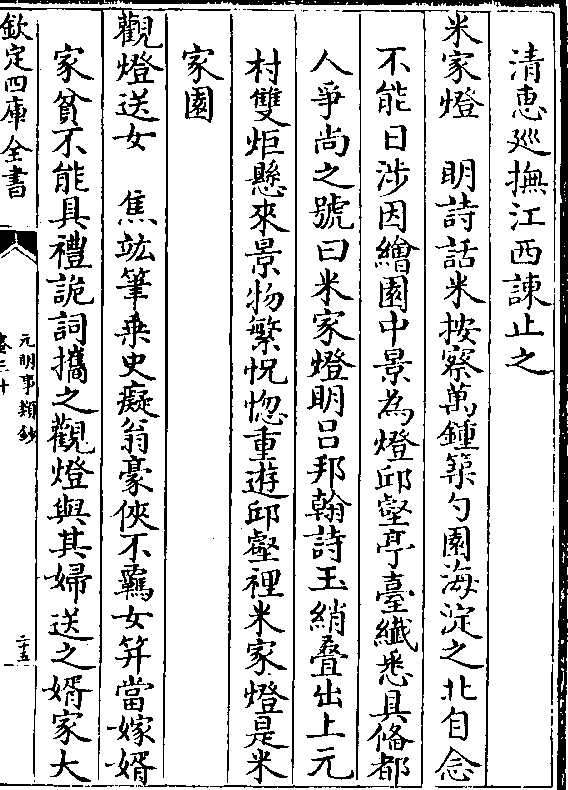 清惠廵撫江西諫止之
米家燈　明詩話米按察萬鍾築勺園海淀之北自念
不能日涉因繪園中景為燈邱壑亭臺纎悉具偹都
人爭尚之號曰米家燈明吕邦翰詩玉綃叠出上元
村雙炬懸來景物繁怳惚重遊邱壑裡米家燈是米
家園
觀燈送女　焦竑筆乗史癡翁豪俠不羈女笄當嫁婿
家貧不能具禮詭詞攜之觀燈與其婦送之婿家大
欽定四庫全書
元明事類鈔
卷三十
二十五